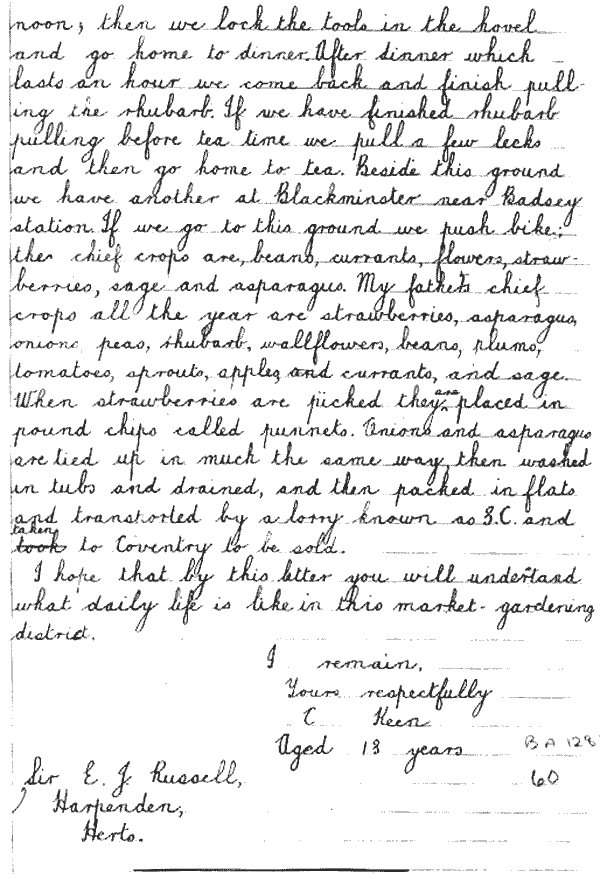 noon; then we lock the tools in the hovel
and go home to dinner. After dinner which
lasts an hour we come back and finish pull-
ing the rhubarb. If we have finished rhubarb
pulling before tea time we pull a few leeks
and then go home to tea. Beside this ground
we have another at Blackminster near Badsey
station. If we go to this ground we push bike;
the chief crops are, beans, currants, flowers, straw-
berries, sage and asparagus. My father's chief
crops all the year are strawberries, asparagus,
onions peas, rhubarb, wallflowers, beans, plums,
tomatoes, sprouts, apples, and currants, and sage.
When strawberries are picked they are placed in
pound chips called punnets. Onions and asparagus
are tied up in much the same way, then washed
in tubs and drained, and then packed in flats
and transported by a lorry known as S.C. and
taken
took to Coventry to be sold.
I hope that by this letter you will understand
what daily life is like in this market-gardening
district.
I remain,
Yours respectfully
C Keen
Aged 13 years
B A 128
60
Sir E. J. Russell,
Harpenden,
Herts.